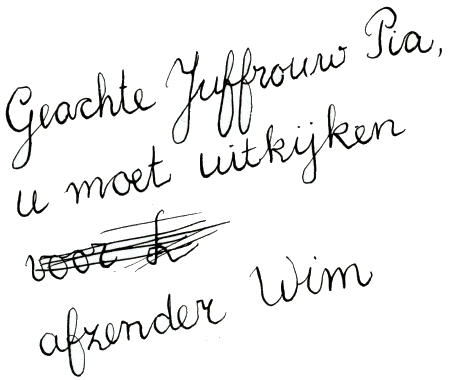 Geachte Juffrouw Pia,
u moet uitkijken
voor
afzender Wim